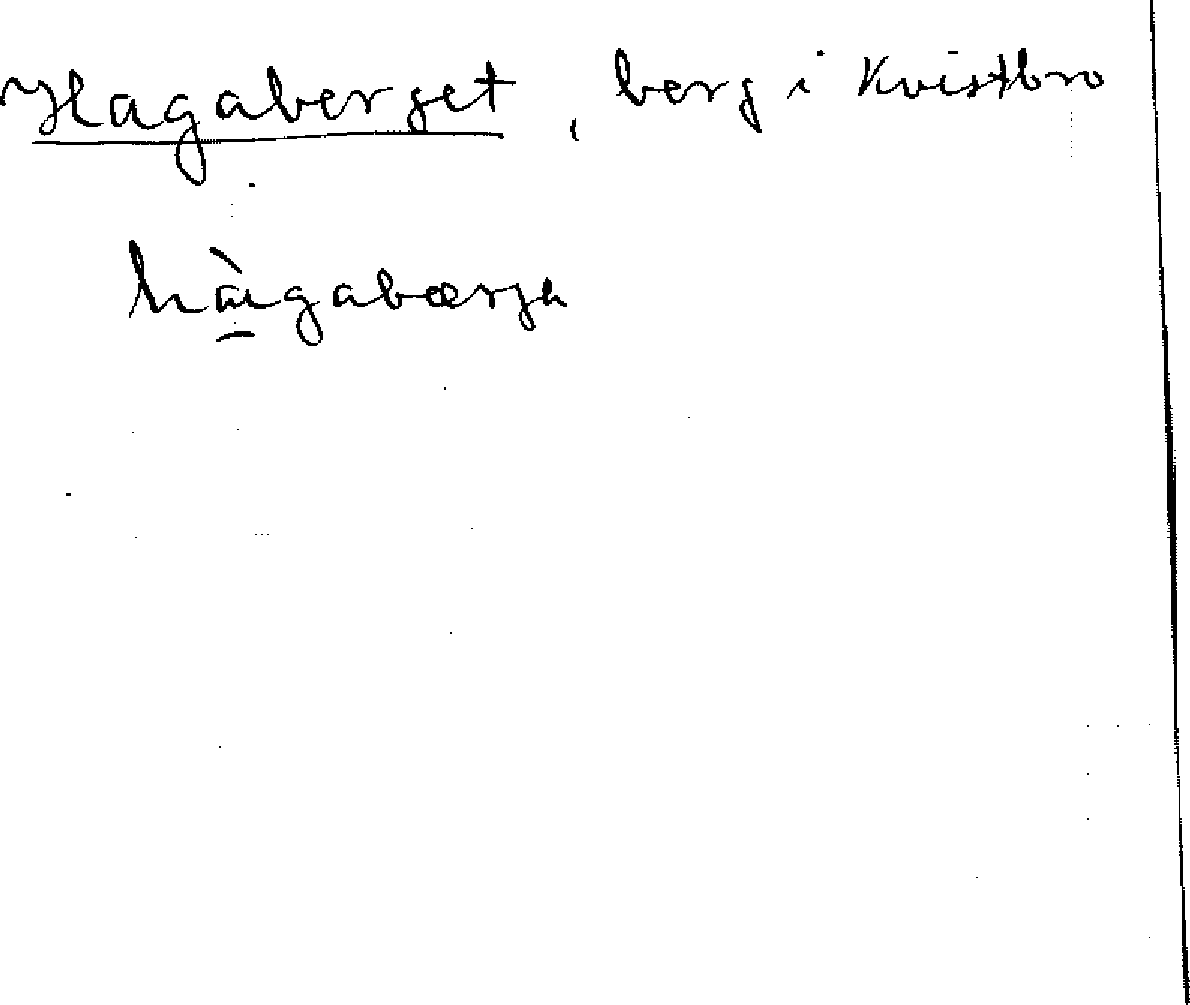 Hagaberget, berg i Kvistbro
hàgabærja